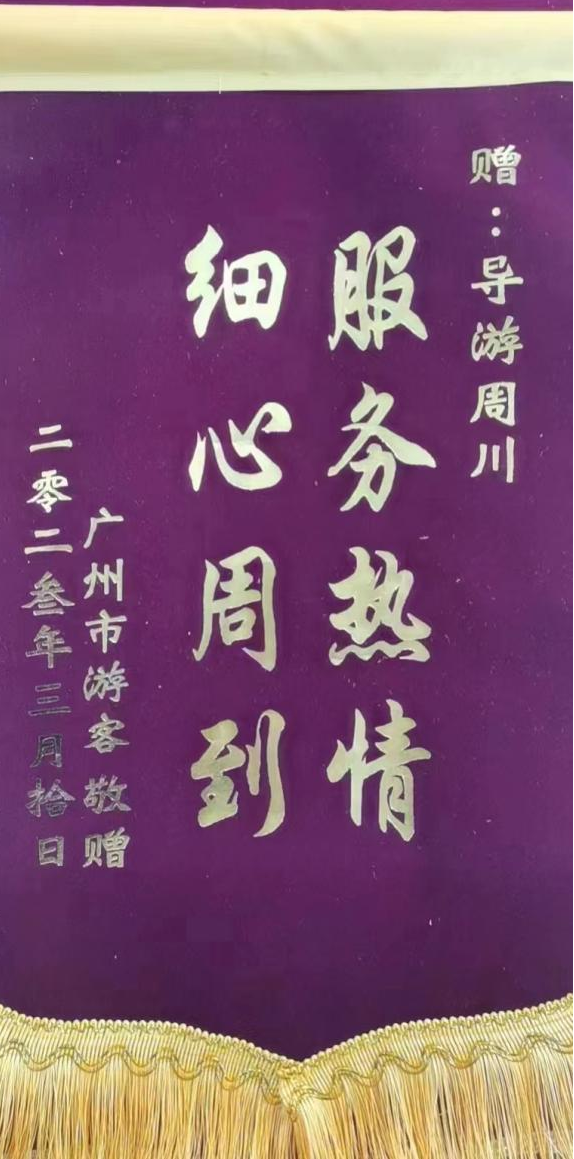 赠：导游周川
服务热情
细心周到
广州市游客敬赠
二零二叁年三月拾日